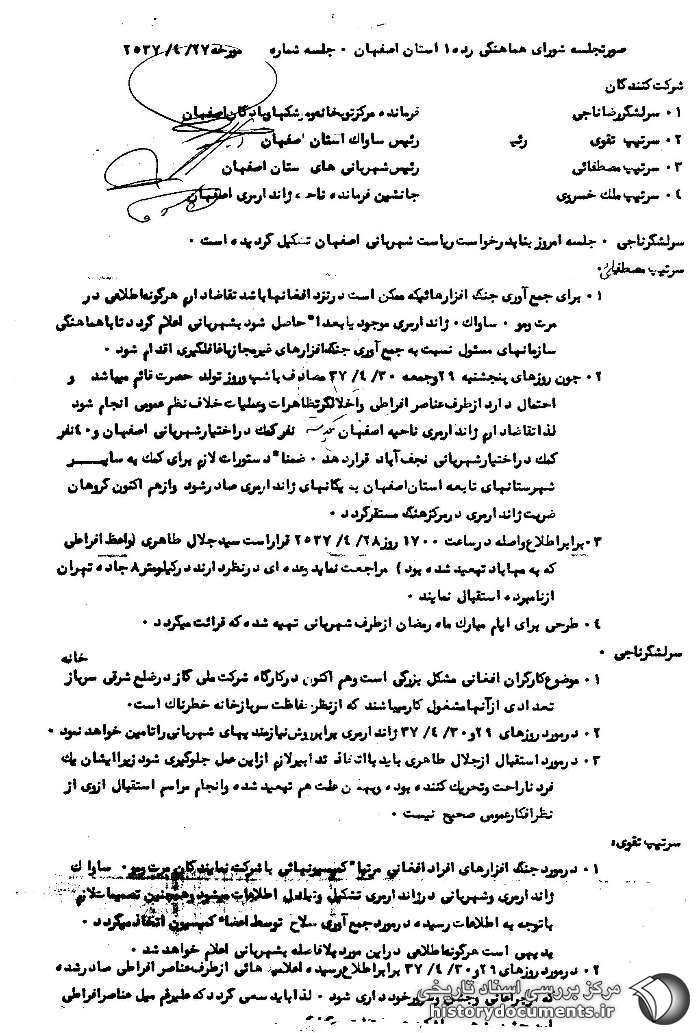 صورتجلسه شورای هماهنگی رده ۱ استان اصفهان ۰ جلسه شماره مورخه ۲۵۳۷/۴/۲۷
شرکت کنندگان
۱ ۰ سرلشگر رضا ناجی فرمانده مرکز توپخانه و موشکها و پادگان اصفهان
۲ ۰ سرتیپ تقوی رئیس ساواک استان اصفهان
۳ ۰ سرتیپ مصطفائی رئیس شهربانی های ستان اصفهان
۴ ۰ سرتیپ ملک خسروی جانشین فرمانده ناحیه ژاندارمری اصفهان
سرلشگر ناجی ۰ جلسه امروز بنا بدرخواست ریاست شهربانی اصفهان تشکیل گردیده است ۰
سرتیپ مصطفائی ۰
۱ ۰ برای جمع آوری جنگ افزارهائیکه ممکن است در نزد افغانیها باشد تقاضا دارم هرگونه اطلاعی در
مرت ومو ۰ ساواک ۰ ژاندارمری موجود یا بعدا" حاصل شود بشهربانی اعلام گردد تا با هماهنگی
سازمانهای مسئول نسبت به جمع آوری جنگ افزارهای غیرمجاز با غافلگیری اقدام شود ۰
۲ ۰ چون روزهای پنجشنبه ۲۹ و جمعه ۳۷/۴/۳۰ مصادف با شب و روز تولد حضرت قائم میباشد و
احتمال دارد از طرف عناصر افراطی و اخلالگر تظاهرات و عملیات خلاف نظم عمومی انجام شود
لذا تقاضا دارم ژاندارمری ناحیه اصفهان نفر کمک در اختیار شهربانی اصفهان و ۴۰ نفر
کمک در اختیار شهربانی نجف آباد قرار دهد ۰ ضمنا" دستورات لازم برای کمک به سایر
شهرستانهای تابعه استان اصفهان به یگانهای ژاندارمری صادر شود و از هم اکنون گروهان
ضربت ژاندارمری در مرکز هنگ مستقر گردد ۰
۳ ۰ برابر اطلاع واصله در ساعت ۱۷۰۰ روز ۲۵۳۷/۴/۲۸ قرار است سید جلال طاهری (واعظ افراطی
که به مهاباد تبعید شده بود) مراجعت نماید وعده ای در نظر دارند در کیلومتر ۸ جاده تهران
از نامبرده استقبال نمایند ۰
۴ ۰ طرحی برای ایام مبارک ماه رمضان از طرف شهربانی تهیه شده که قرائت میگردد ۰
سرلشگر ناجی ۰
۱ ۰ موضوع کارگران افغانی مشکل بزرگی است و هم اکنون در کارگاه شرکت ملی گاز در ضلع شرقی سرباز خانه
تعدادی از آنها مشغول کار میباشند که از نظر حفاظت سربازخانه خطرناک است ۰
۲ ۰ در مورد روزهای ۲۹ و ۳۷/۴/۳۰ ژاندارمری برابر روش نیازمندیهای شهربانی را تامین خواهد نمود ۰
۳ ۰ در مورد استقبال از جلال طاهری باید با اتخاذ تدابیر لازم از این عمل جلوگیری شود زیرا ایشان یک
فرد ناراحت و تحریک کننده بوده و بهمین علت هم تبعید شده و انجام مراسم استقبال از وی از
نظر افکار عمومی صحیح نیست ۰
سرتیپ تقوی ۰
۱ ۰ در مورد جنگ افزارهای افراد افغانی مرتبا" کمیسیونهائی با شرکت نمایندگان مرت ومو ۰ ساواک
ژاندارمری و شهربانی در ژاندارمری تشکیل و تبادل اطلاعات میشود و همچنین تصمیمات لازم
با توجه به اطلاعات رسیده در مورد جمع آوری سلاح توسط اعضاء کمیسیون اتخاذ میگردد ۰
بدیهی است هرگونه اطلاعی در این مورد بلافاصله بشهربانی اعلام خواهد شد ۰
۲ ۰ در مورد روزهای ۲۹ و ۳۷/۴/۳۰ برابر اطلاع رسیده اعلامیه هائی از طرف عناصر افراطی صادر شده
که از چراغانی و جشن و سرور خودداری شود ۰ لذا باید سعی گردد که علیرغم میل عناصر افراطی
مرکز بررسی اسناد تاریخی
historydocuments.ir